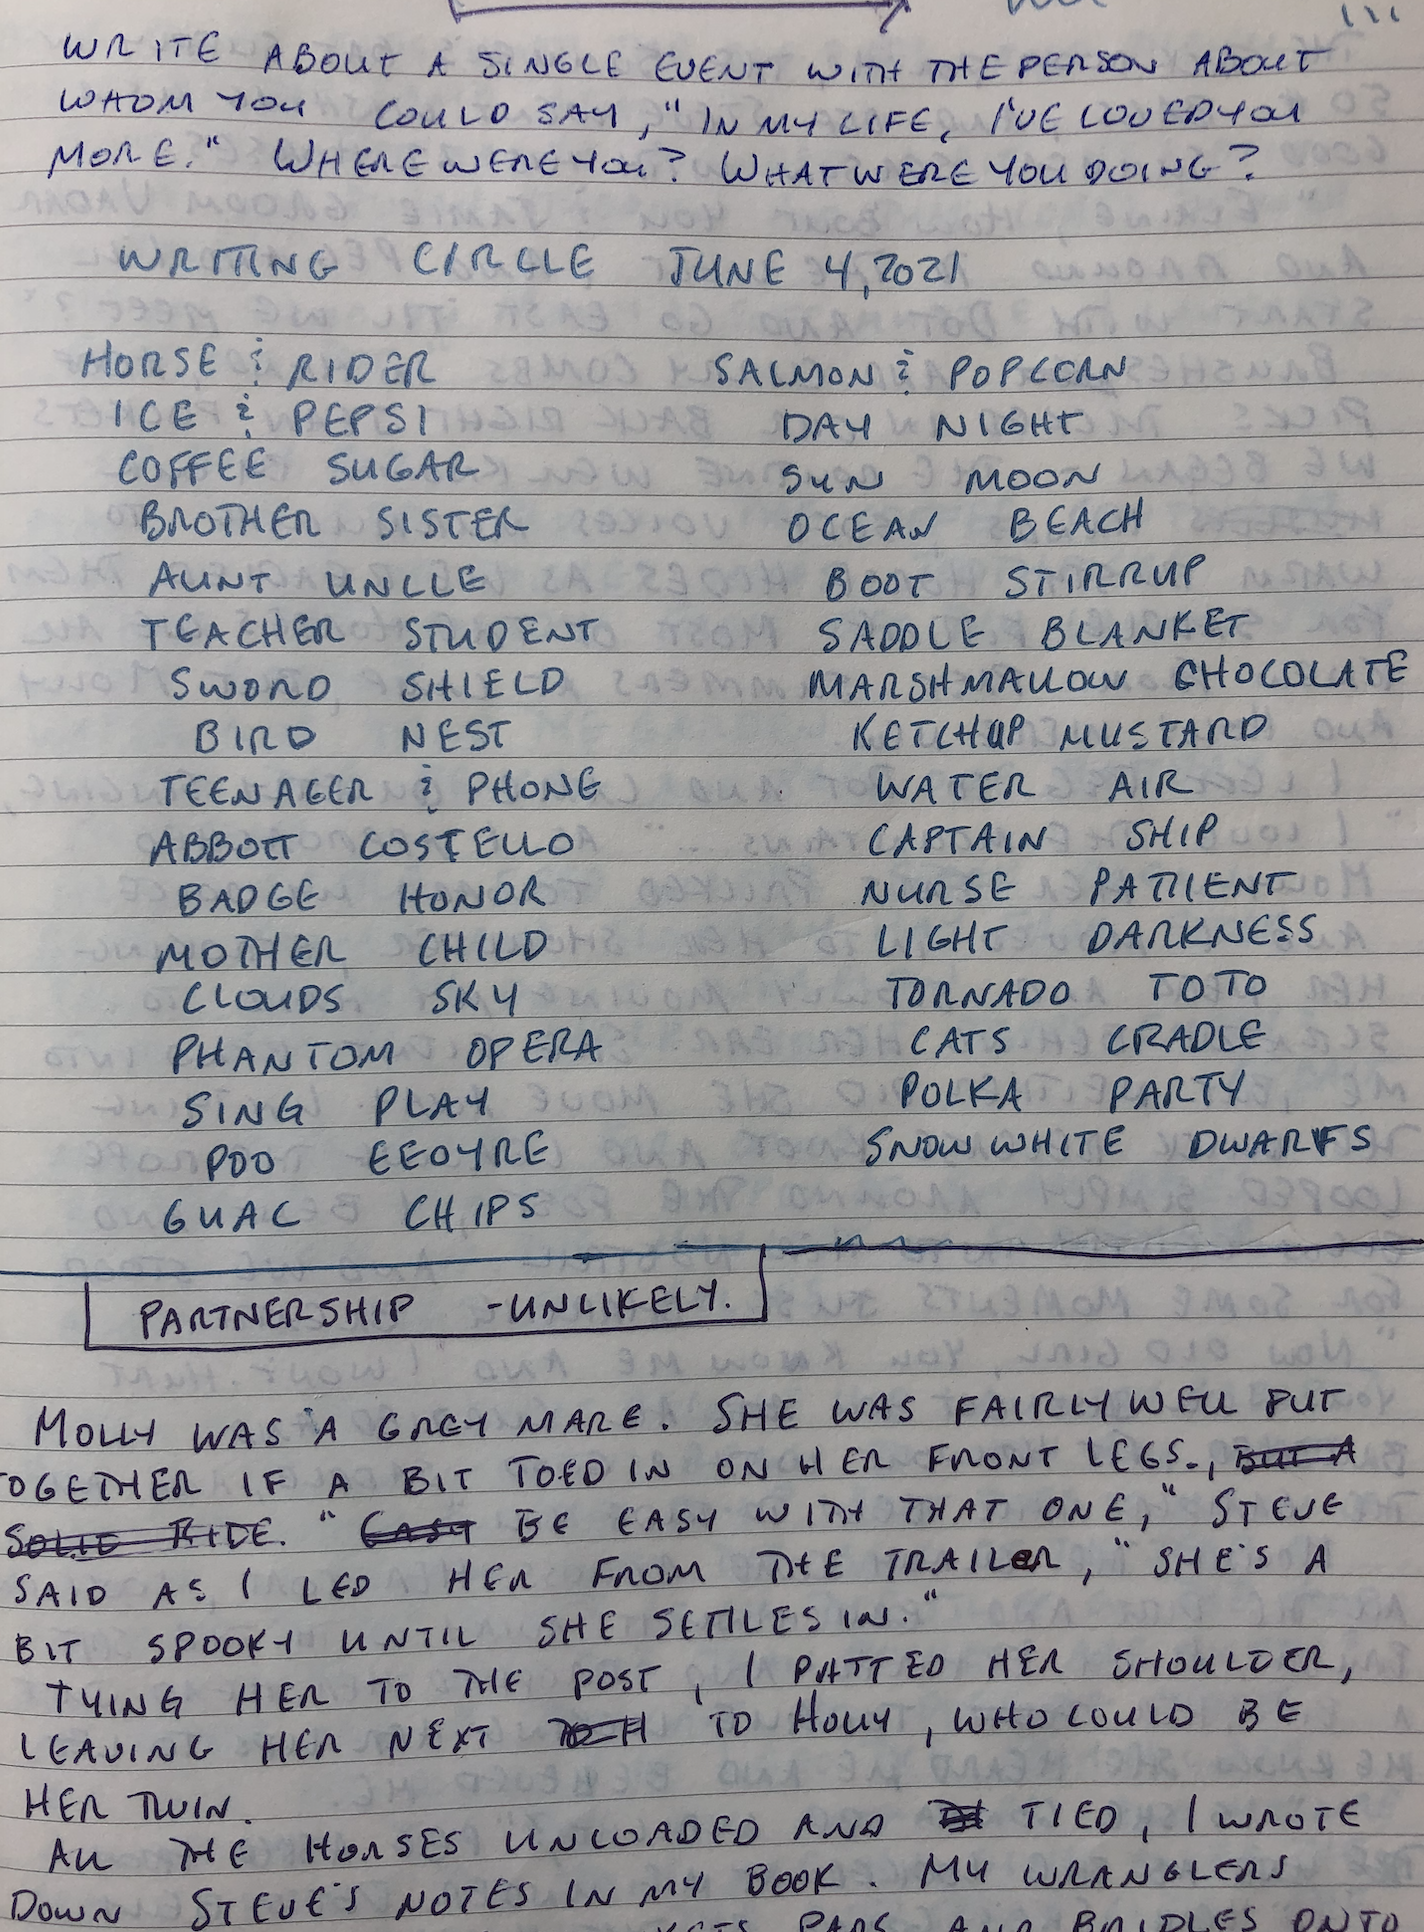 WRITE ABOUT A SINGLE EVENT WITH THE PERSON ABOUT
WHOM YOU COULD SAY, "IN MY LIFE, I'VE LOVED YOU
MORE." WHERE WERE YOU? WHAT WERE YOU DOING?
WRITING CIRCLE JUNE 4, 2021
HORSE & RIDER
ICE & PEPSI
COFFEE SUGAR
BROTHER SISTER
AUNT UNCLE
TEACHER STUDENT
SWORD SHIELD
BIRD NEST
TEENAGER & PHONE
ABBOTT COSTELLO
BADGE HONOR
MOTHER CHILD
CLOUDS SKY
PHANTOM OPERA
SING PLAY
POO EEOYRE
GUAC CHIPS
SALMON & POPCORN
DAY NIGHT
SUN MOON
OCEAN BEACH
BOOT STIRRUP
SADDLE BLANKET
MARSHMALLOW CHOCOLATE
KETCHUP MUSTARD
WATER AIR
CAPTAIN SHIP
NURSE PATIENT
LIGHT DARKNESS
TORNADO TOTO
CATS CRADLE
POLKA PARTY
SNOW WHITE DWARFS
PARTNERSHIP - UNLIKELY.
MOLLY WAS A GREY MARE. SHE WAS FAIRLY WELL PUT
TOGETHER IF A BIT TOED IN ON HER FRONT LEGS., BUT A
SOLID RIDE. "EASY BE EASY WITH THAT ONE," STEVE
SAID AS I LED HER FROM THE TRAILER, "SHE'S A
BIT SPOOKY UNTIL SHE SETTLES IN."
TYING HER TO THE POST, I PATTED HER SHOULDER,
LEAVING HER NEXT TO H TO HOLLY, WHO COULD BE
HER TWIN.
ALL THE HORSES UNLOADED AND TIED, I WROTE
DOWN STEVE'S NOTES IN MY BOOK. MY WRANGLERS
PADS AND BRIDLES ONTO